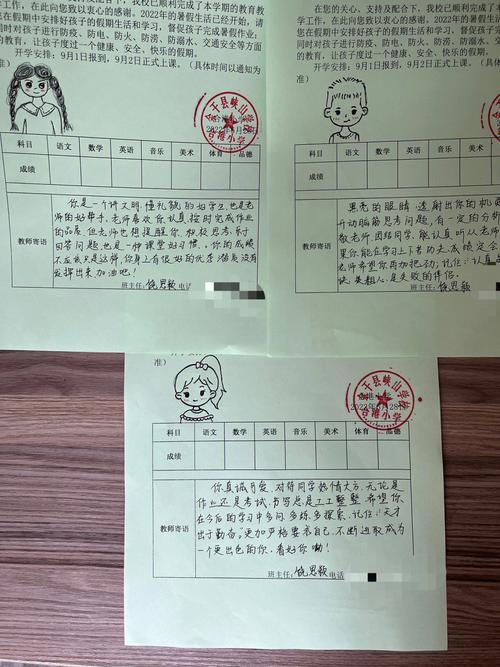 在您的关心、支持及配合下，我校已顺利完成了本学期的教育教
学工作，在此向您致以衷心的感谢。2022年的暑假生活已经开始，请
您在假期中安排好孩子的假期生活和学习，督促孩子完成暑假作业；
同时对孩子进行防疫、防电、防火、防涝、防溺水、交通安全等方面
教育，让孩子度过一个健康、安全、快乐的假期。
开学安排：9月1日报到，9月2日正式上课。（具体时间以通知为
准）
余干县峡山学校
合港小学
科目 语文 数学 英语 音乐 美术 体育 品德
成绩
教师寄语
你是一个讲文明，懂礼貌的好学生，也是老
师的好帮手，老师喜欢你认真按时完成作业
的品质，但老师也想提醒你，积极思考、乐于
回答问题，也是一种课堂好习惯。你的成绩
不应该只是这样，你身上有很好的优柔潜质没有
发挥出来，加油吧！
班主任：饶思颖 电话
在您的关心、支持及配合下，我校已顺利完成了本
学工作，在此向您致以衷心的感谢。2022年的暑假生
您在假期中安排好孩子的假期生活和学习，督促孩子
同时对孩子进行防疫、防电、防火、防涝、防溺水、
教育，让孩子度过一个健康、安全、快乐的假期。
开学安排：9月1日报到，9月2日正式上课。（具体
准）
科目 语文 数学 英语 音乐 美术
成绩
教师寄语
黑亮的眼睛，透射出你的机
开动脑筋思考问题，有一定的分析
敬老师，团结同学，能认真听从老师
果你能在学习上下苦功夫，成绩定会
老师希望你再加把劲；记住：认真是
诀，粗
人，是失败的伴侣。
班主任：饶思颖
准）
余干县峡山学校
合港小学
科目 语文 数学 英语 音乐 美术 体育 品德
成绩
教师寄语
你真诚可爱，对待同学热情大方，无论是
作业还是考试，书写总是工工整整，希望你
在今后的学习中多问，多练，多探索，记住：天才
出于勤奋，更加严格要求自己，不断进取成为
一个更出色的你，看好你呦！
班主任：饶思颖 电话